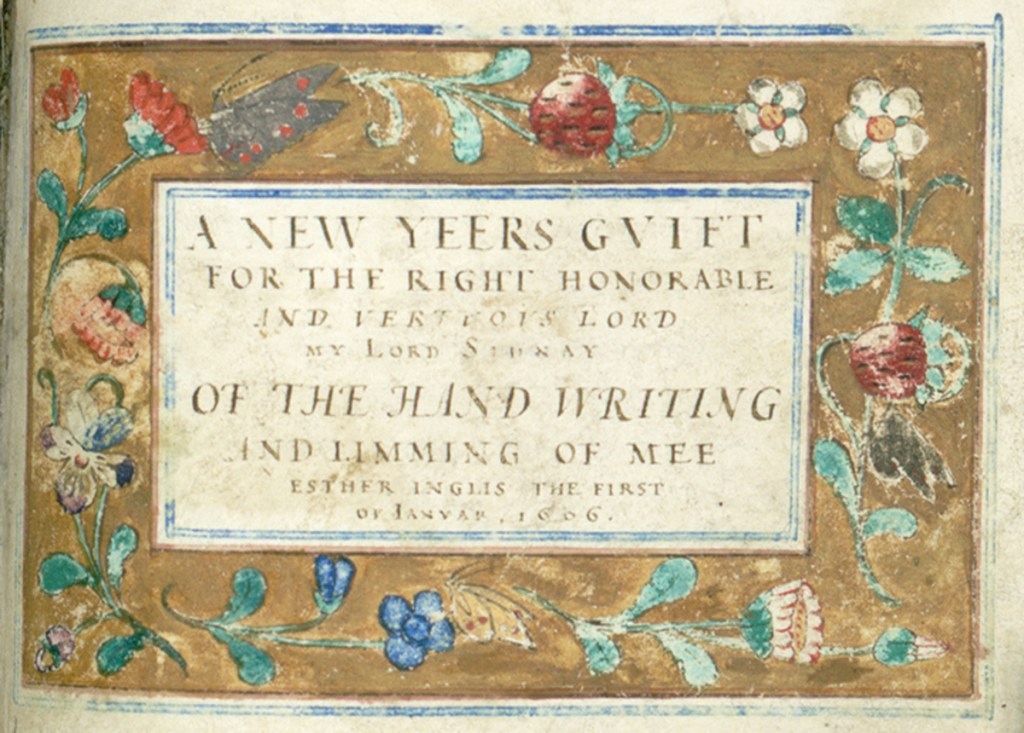 A NEW YEERS GVIFT
FOR THE RIGHT HONORABLE
AND VERTVOIS LORD
MY LORD SIDNAY
OF THE HAND WRITING
AND LIMMING OF MEE
ESTHER INGLIS THE FIRST
OF IANVAR, 1606.